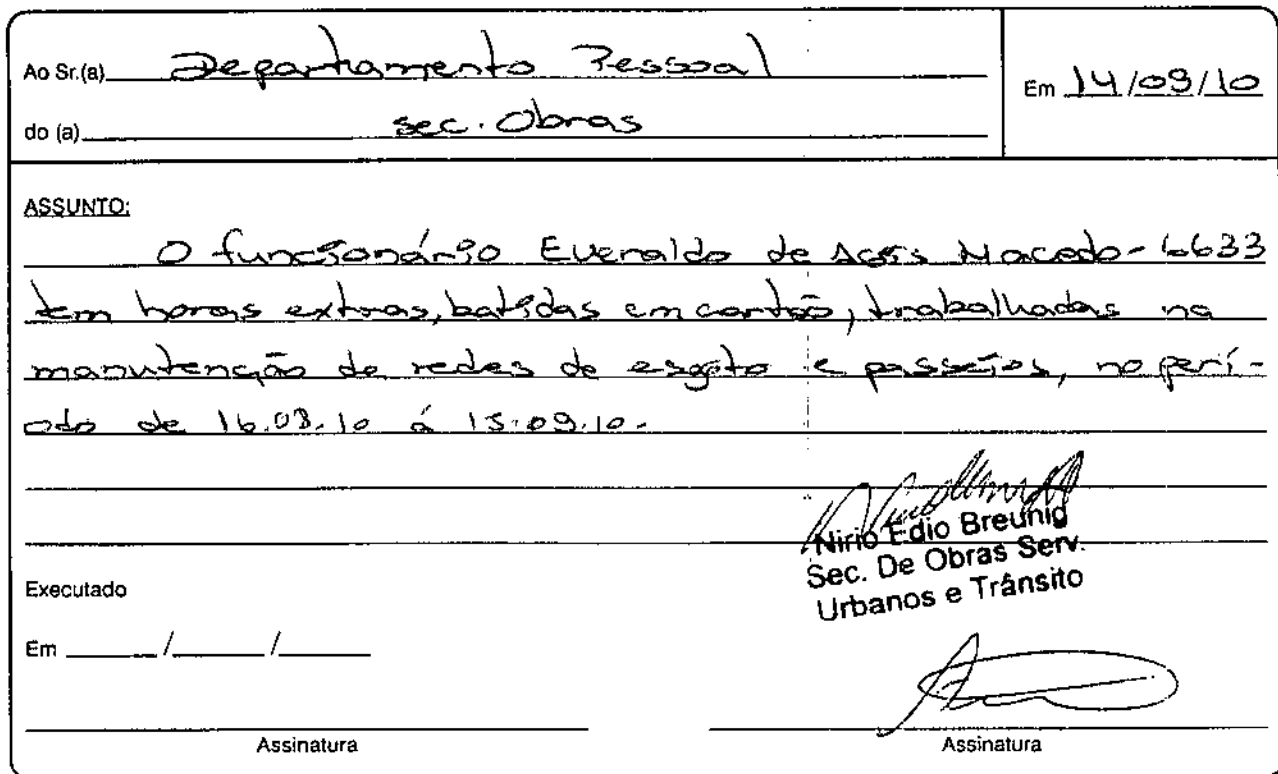 Ao Sr.(a) Departamento Pessoal
Em 14/09/10
do (a) sec. Obras
ASSUNTO:
O funcionário Everaldo de Assis Macedo - 6633
tem horas extras, batidas em cartão, trabalhadas na
manutenção de redes de esgoto e passeios, no perí-
odo de 16.08.10 á 15.09.10.
Nirio Edio Breunig
Sec. De Obras Serv.
Urbanos e Trânsito
Executado
Em ____/____/____
Assinatura
Assinatura